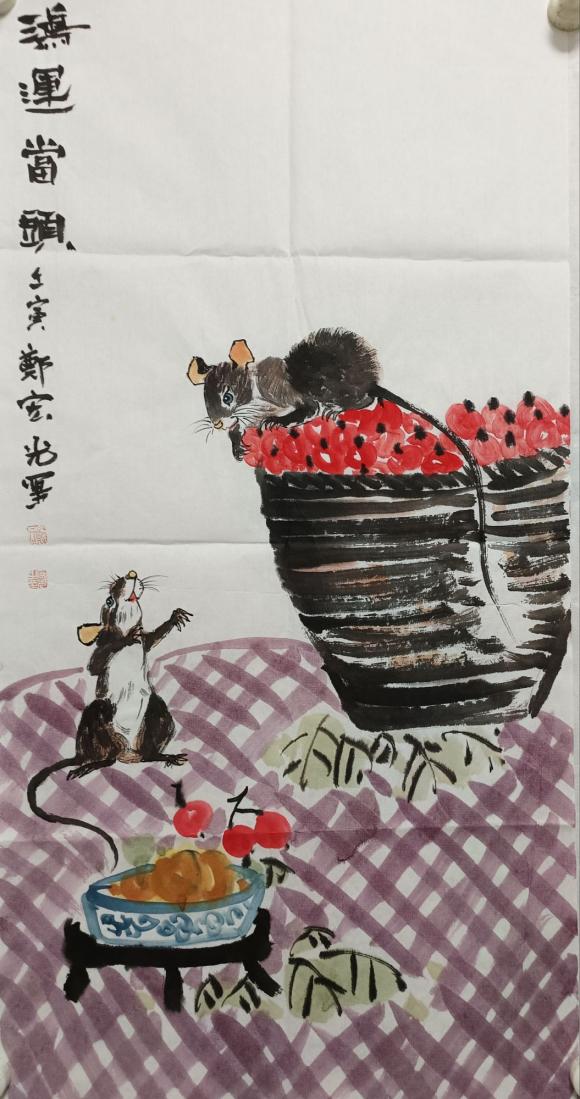 鴻運當頭
壬寅鄭宏光畫